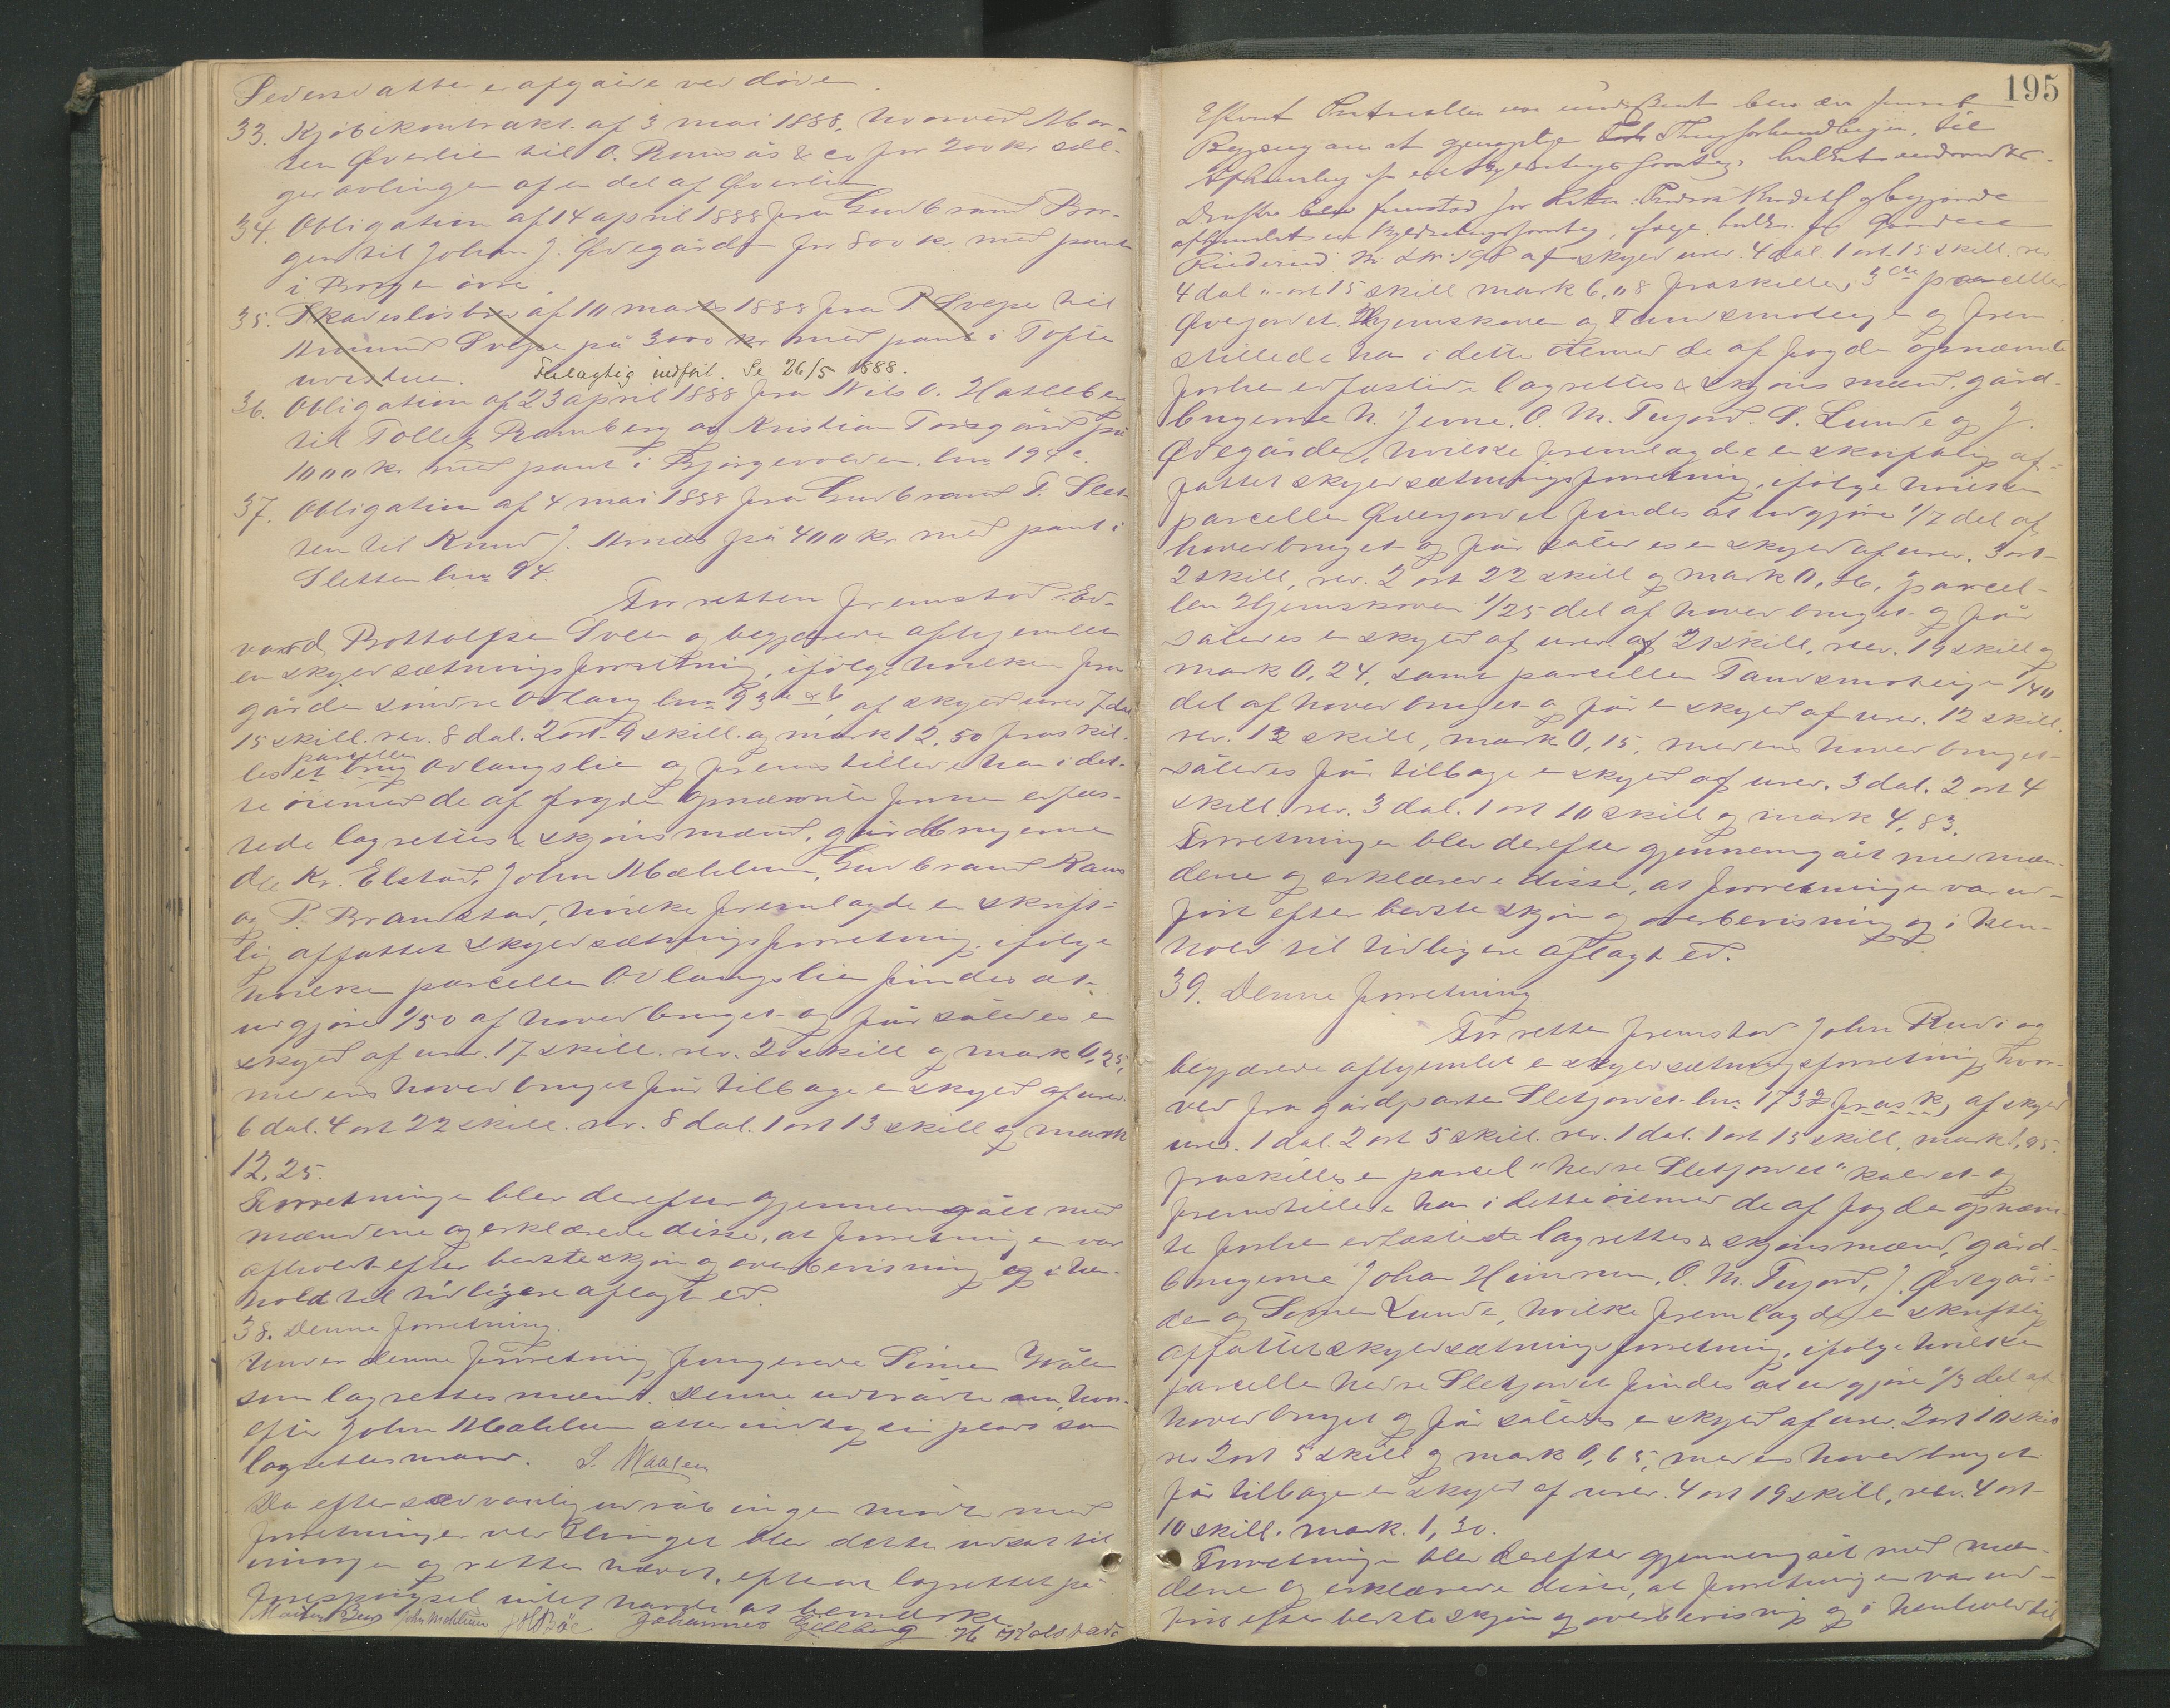 Pedersdatter er afgåede ved døden.
33. Kjøbekontrakt af 3 mai 1888, hvorved Mor-
ten Øverlien til O. Romsås & co for 200 kr sæl-
ger avlingen af en del af Øverlien
34. Obligation af 14 april 1888 fra Gudbrand Bor-
gen til Johan J. Øvegårdn for 800 kr. med pant
i Borgen øvre.
35. Skadesløsbrev af 10 marts 1888 fra P. Svepe til
Amund Svepe på 3000 kr med pant i Tofte
nordstuen. Feilagtig indført. Se 26/5 1888.
36. Obligation af 23 april 1888 fra Nils O. Hatleben
til Tollef Ramberg og Kristian Torsgård på
1000 kr. med pant i Bjørgevolden. lno 194c.
37. Obligation af 4 mai 1888 fra Gudbrand T. Slet-
ten til Knud J. Arnæs på 400 kr med pant i
Sletten lno 94.
For retten fremstod Ed-
vard Bottolfsen Sveen og begjærede afhjemlet
en skyldsætningsforretning, ifølge hvilken fra
gården søndre Odlaug lno 93 a & b, af skyld urev 7 dal
15 skill. rev. 8 dal. 2 ort 9 skill. og mark 12,50 fraskil-
les et brug parcellen Odlaugslien og fremstillede han i det-
te øiemed de af fogden opnævnte forhen edfæs-
tede lagrettes & skjønsmænd, gårdbrugerne
Kr. Elstad, John Mæhlum, Gudbrand Raus
og P. Brandstad, hvilke fremlagde en skrift-
lig affattet skyldsætningsforretning, ifølge
hvilken parcellen Odlaugslien findes at
udgjøre 1/50 af hovedbruget og får således en
skyld af urev. 17 skill. rev. 20 skill og mark 0,25,
medens hovedbruget får tilbage en skyld af urev.
6 dal. 4 ort 22 skill. rev. 8 dal. 1 ort 13 skill og mark
12,25.
Forretningen blev derefter gjennemgået med
mændene og erklærede disse, at forretningen var
afholdt efter bedste skjøn og overbevisning og i hen-
hold til tidligere aflagt ed.
38. Denne forretning.
Under denne forretning fungerede Simen Wålen
som lagrettesmand. Denne udtrådte nu, hvor-
efter John Mæhlum atter indtog sin plads som
lagrettesmand. S. Waalen
Da efter sædvanlig udråb ingen mødte med
forretninger ved Thinget blev dette udsat til
imorgen og retten hævet, efterat lagrettet på
forespørgsel intet havde at bemærke.
John Mæhlum Johannes Gillberg H. Kolstad
195
Efterat Protocollen var underskrevet blev der fremsat
Begjæring om at gjenoptage Thingforhandlingen, til
Afhjemling af en Skyldsætningsforretning hvilket indrømmedes.
Derefter fremstod for Retten: og begjærede
afhjemlet en Skyldsætningsforretning, ifølge hvilken fra Gaarden
Ruderud lno 198 af skyld urev. 4 dal. 1 ort. 15 skill. rev
4 dal " ort 15 skill mark 6,08 fraskilles 3de parceller
Øvejordet, Hjemskoven og Tandsmoteigen og frem
stillede han i dette øiemed de af fogden opnævnte
forhen edfæstede lagrettes & skjønsmænd, gård-
brugerne N. Jevne, O. M. Tujord, S. Lunde og J.
Øvegården, hvilke fremlagde en skriftlig af-
fattet skyldsætningsforretning, ifølge hvilken
parcellen Øvejordet findes at udgjøre 1/7 del af
hovedbruget og får således en skyld af urev. 3 ort
2 skill, rev. 2 ort 22 skill og mark 0,86, parcel-
len Hjemskoven 1/25 del af hovedbruget og får
således en skyld af urev. af 21 skill, rev. 19 skill og
mark 0,24, samt parcellen Tandsmoteigen 1/40
del af hovedbruget og får en skyld af urev. 12 skill.
rev. 12 skill, mark 0,15, medens hovedbruget
således får tilbage en skyld af urev. 3 dal. 2 ort 4
skill rev. 3 dal. 1 ort 10 skill og mark 4,83.
Forretningen blev derefter gjennemgået med mæn-
dene og erklærede disse, at forretningen var ud-
ført efter bedste skjøn og overbevisning og i hen-
hold til tidligere aflagt ed.
39. Denne forretning
For retten fremstod John Rudi og
begjærede afhjemlet en skyldsætningsforretning, hvor-
ved fra gårdparten Sletjordet lno 173 af skyld
urev. 1 dal. 2 ort 5 skill. rev. 1 dal. 1 ort 15 skill, mark 1,95.
fraskilles en parcel "nedre Sletjordet" kaldet og
fremstillede han i dette øiemed de af fogden opnævn
te forhen edfæstede lagrettes & skjønsmænd, gård-
brugerne Johan Heimrum, O. M. Tujord, J. Øvegår-
den og Simen Lunde, hvilke fremlagde en skriftlig
affattet skyldsætningsforretning, ifølge hvilken
parcellen nedre Sletjordet findes at udgjøre 1/3 del af
hovedbruget og får således en skyld af urev. 2 ort 10 skill
rev 2 ort 5 skill og mark 0,65, medens hovedbruget
får tilbage en skyld af urev. 4 ort 19 skill, rev. 4 ort
10 skill. mark. 1,30.
Forretningen blev derefter gjennemgået med mæn-
dene og erklærede disse, at forretningen var ud-
ført efter bedste skjøn og overbevisning og i henhold til